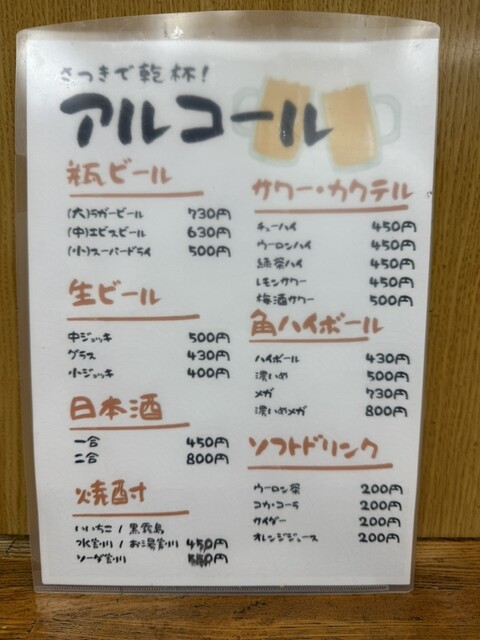 さつきで乾杯!
アルコール
瓶ビール
(大)ラガービール 730円
(中)エビスビール 630円
(小)スーパードライ 500円
生ビール
中ジョッキ 500円
グラス 430円
小ジョッキ 400円
日本酒
一合 450円
二合 800円
焼酎
いいちこ / 黒霧島
水割り / お湯割り 450円
ソーダ割り 円
サワー・カクテル
チューハイ 450円
ウーロンハイ 450円
緑茶ハイ 450円
レモンサワー 450円
梅酒サワー 500円
角ハイボール
ハイボール 430円
濃いめ 500円
メガ 730円
濃いめメガ 800円
ソフトドリンク
ウーロン茶 200円
コカ・コーラ 200円
サイダー 200円
オレンジジュース 200円